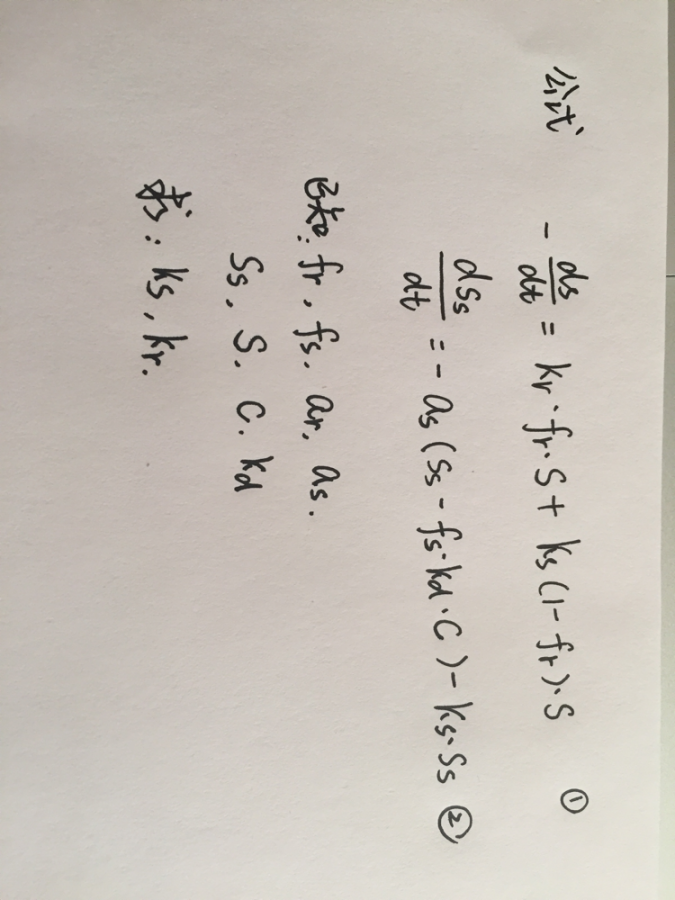 公式 -ds/dt = kr·fr·S + ks(1-fr)·S ①
dSs/dt = -as(Ss-fs·kd·C)-ks·Ss ②
已知: fr, fs, ar, as.
Ss, S. C. kd
求: ks, kr.